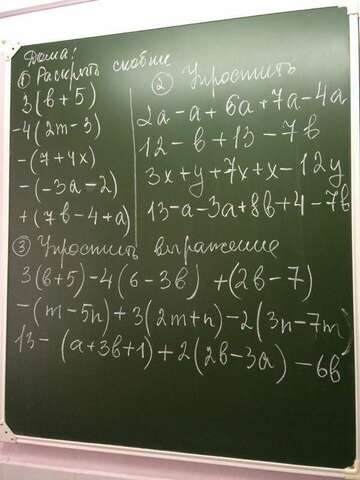 Дома:
① Раскрыть скобки
3(в+5)
-4(2m-3)
-(7+4x)
-(-3a-2)
+(7в-4+a)
② Упростить
2a-a+6a+7a-4a
12-в+13-7в
3x+y+7x+x-12y
13-a-3a+8в+4-7в
③ Упростить выражение
3(в+5)-4(6-3в)+(2в-7)
-(m-5n)+3(2m+n)-2(3n-7m)
13-(a+3в+1)+2(2в-3a)-6в